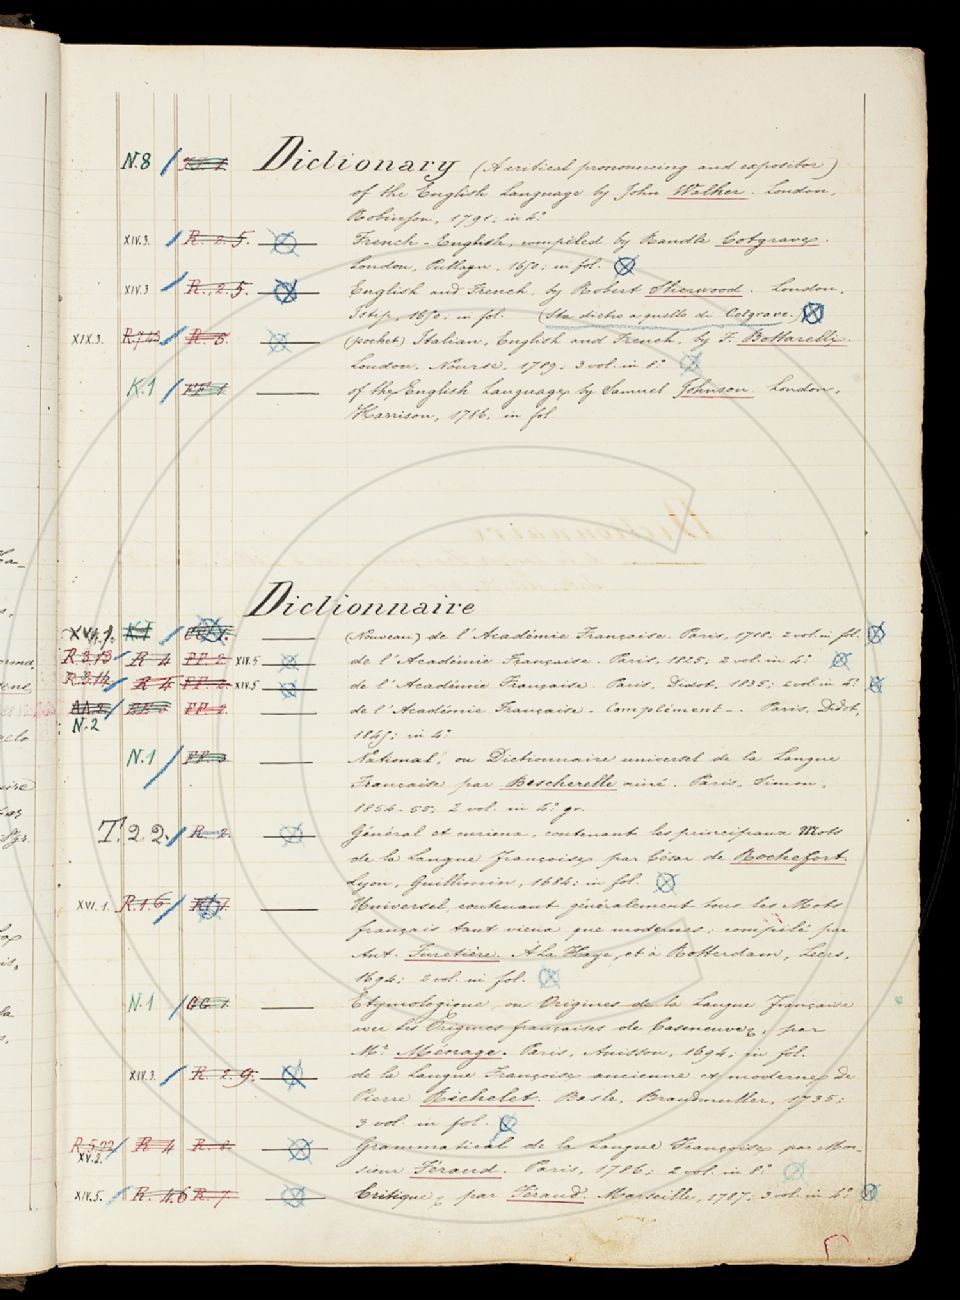 N.8 / Dictionary (A critical pronouncing and expositor)
of the English Language by John Walker. London,
Robinson, 1791; in 4°
XIV.3. / R. 2. 5. — French-English, compiled by Randle Cotgrave.
London, 1650; in fol.
XIV.3 / R. 2. 5. — English and French, by Robert Sherwood. London,
1650; in fol. (Sta dietro a quello di Cotgrave.)
XIX.3. R.7.13 / R. 8. — (pocket) Italian, English and French, by F. Bottarelli.
London, Nourse, 1789; 3 vol. in 8°
K.1 / FF 1 — of the English Language by Samuel Johnson. London,
Harrison, 1786; in fol.
Dictionnaire
XVI.1. K.1 / — (Nouveau) de l'Académie Française. Paris, 1718; 2 vol. in fol.
R.3.13 / R 4 FF. 2. XIV.5 de l'Académie Française. Paris, 1825; 2 vol. in 4°
R.3.14 / R 4 FF. 2. XIV.5 de l'Académie Française. Paris, Didot, 1835; 2 vol. in 4°
/ FF. 2. — de l'Académie Française. Complément. Paris, Didot,
N.2 1845; in 4°
N.1 / FF 3 — National, ou Dictionnaire universel de la Langue
Française par Bescherelle ainé. Paris, Simon,
1854-55; 2 vol. in 4° gr.
T.22. / R. 2. Général et curieux, contenant les principaux Mots
de la Langue Françoise par César de Rochefort.
Lyon, Guillimin, 1684; in fol.
XVI.1. R.1.6 / R.1.1. — Universel, contenant généralement tous les Mots
français tant vieux que modernes; compilé par
Ant. Furetière. À La Haye, et à Rotterdam, Leers,
1694; 2 vol. in fol.
N.1 / GG.1. — Etymologique, ou Origines de la Langue Française
avec les Origines françaises de Caseneuve, par
Mr. Ménage. Paris, Anisson, 1694; in fol.
XIV.3. / R. 2. 9. — de la Langue Françoise ancienne et moderne de
Pierre Richelet. Basle, Brandmuller, 1735;
3 vol. in fol.
R.5.22 / R 4 R. 8. — Grammatical de la Langue Françoise par Mon-
XV.2. sieur Féraud. Paris, 1786; 2 vol. in 8°
XIV.5. / R. 4.6 R. 7 — Critique, par Féraud. Marseille, 1787, 3 vol. in 4°